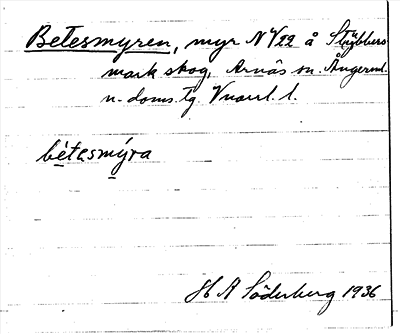 Betesmyren, myr N V22 å Stybbers
mark skog, Arnäs sn. Ångerml.
n. doms. tg. Vnorrl. l.
bètesmýra
H A Söderberg 1936